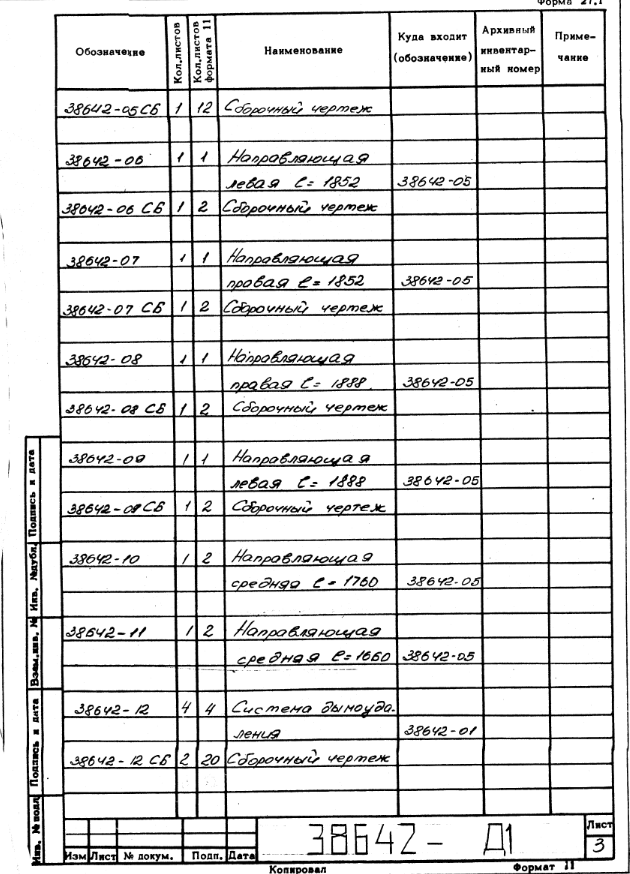 Форма 27.1
Обозначение Кол.листов Кол.листов формата 11 Наименование Куда входит (обозначение) Архивный инвентарный номер Примечание
38642-05 СБ 1 12 Сборочный чертеж
38642-06 1 1 Направляющая
левая ℓ= 1852 38642-05
38642-06 СБ 1 2 Сборочный чертеж
38642-07 1 1 Направляющая
правая ℓ= 1852 38642-05
38642-07 СБ 1 2 Сборочный чертеж
38642-08 1 1 Направляющая
правая ℓ= 1888 38642-05
38642-08 СБ 1 2 Сборочный чертеж
38642-09 1 1 Направляющая
левая ℓ= 1888 38642-05
38642-09 СБ 1 2 Сборочный чертеж
38642-10 1 2 Направляющая
средняя ℓ= 1760 38642-05
38642-11 1 2 Направляющая
средняя ℓ= 1660 38642-05
38642-12 4 4 Система дымоуда-
ления 38642-01
38642-12 СБ 2 20 Сборочный чертеж
Подпись и дата
Инв. №дубл.
Взам.инв. №
Подпись и дата
Инв. №подл
38642- Д1
Лист
3
Изм Лист № докум. Подп. Дата
Копировал Формат 11